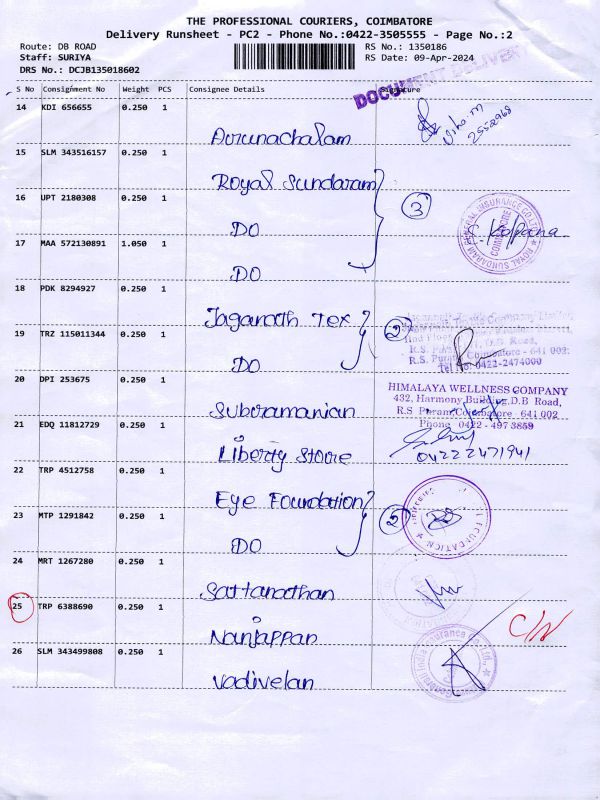 THE PROFESSIONAL COURIERS, COIMBATORE
Delivery Runsheet - PC2 - Phone No.:0422-3505555 - Page No.:2
Route: DB ROAD
RS No.: 1350186
Staff: SURIYA
RS Date: 09-Apr-2024
DRS No.: DCJB135018602
DOCUMENT DELIVER
S No Consignment No Weight PCS Consignee Details Signature
14 KDI 656655 0.250 1
Arunachalam
15 SLM 343516157 0.250 1
Royal Sundaram
16 UPT 2180308 0.250 1
3
DO
17 MAA 572130891 1.050 1
DO
ROYAL SUNDARAM GENERAL INSURANCE CO.LTD.
COIMBATORE
Kalpana
18 PDK 8294927 0.250 1
Jaganath Tex
2
19 TRZ 115011344 0.250 1
DO
D.B. Road,
Coimbatore - 641 002
Tel No. 0422-2474000
20 DPI 253675 0.250 1
HIMALAYA WELLNESS COMPANY
432, Harmony Building, D.B Road,
R.S Puram, Coimbatore - 641 002
Phone 0422 - 497 3859
Subramanian
21 EDQ 11812729 0.250 1
Liberty Store
04222471941
22 TRP 4512758 0.250 1
Eye Foundation
2
23 MTP 1291842 0.250 1
DO
FOUNDATION
24 MRT 1267280 0.250 1
Sattanathan
25 TRP 6388690 0.250 1
C/N
Nanjappan
26 SLM 343499808 0.250 1
Vadivelan